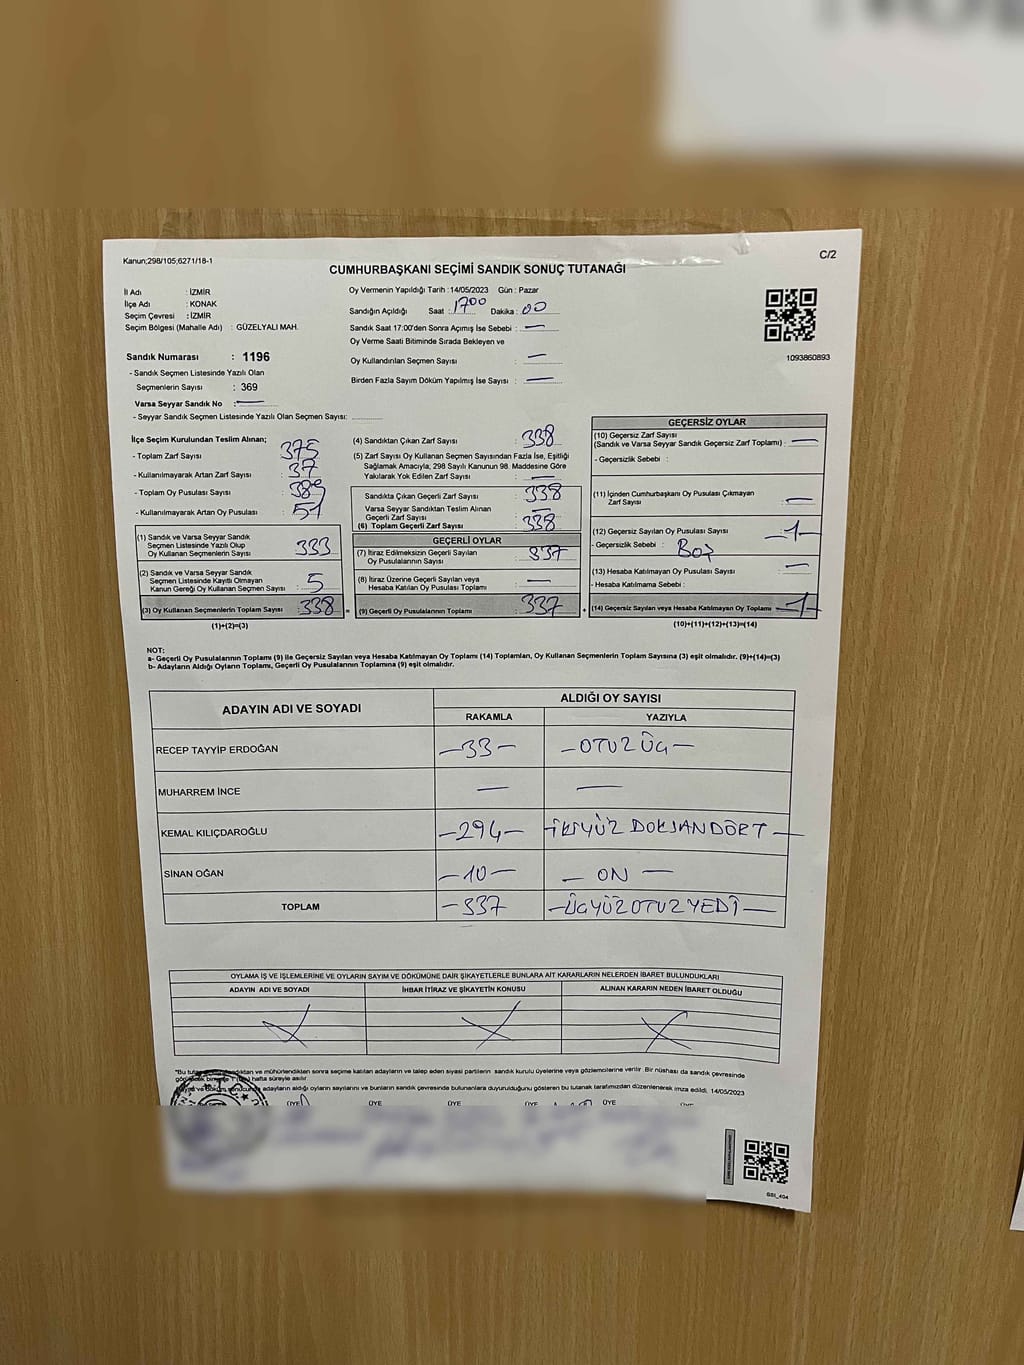 Kanun;298/105;6271/18-1
C/2
CUMHURBAŞKANI SEÇİMİ SANDIK SONUÇ TUTANAĞI
İl Adı : İZMİR
İlçe Adı : KONAK
Seçim Çevresi : İZMİR
Seçim Bölgesi (Mahalle Adı) : GÜZELYALI MAH.
Sandık Numarası : 1196
- Sandık Seçmen Listesinde Yazılı Olan
Seçmenlerin Sayısı : 369
Varsa Seyyar Sandık No : —
- Seyyar Sandık Seçmen Listesinde Yazılı Olan Seçmen Sayısı:
Oy Vermenin Yapıldığı Tarih :14/05/2023 Gün : Pazar
Sandığın Açıldığı Saat : 1700 Dakika : 00
Sandık Saat 17:00'den Sonra Açımış İse Sebebi : —
Oy Verme Saati Bitiminde Sırada Bekleyen ve
Oy Kullandırılan Seçmen Sayısı : —
Birden Fazla Sayım Döküm Yapılmış İse Sayısı : —
1093860893
İlçe Seçim Kurulundan Teslim Alınan;
- Toplam Zarf Sayısı : 375
- Kullanılmayarak Artan Zarf Sayısı : 37
- Toplam Oy Pusulası Sayısı : 389
- Kullanılmayarak Artan Oy Pusulası : 51
(1) Sandık ve Varsa Seyyar Sandık
Seçmen Listesinde Yazılı Olup
Oy Kullanan Seçmenlerin Sayısı : 333
(2) Sandık ve Varsa Seyyar Sandık
Seçmen Listesinde Kayıtlı Olmayan
Kanun Gereği Oy Kullanan Seçmen Sayısı : 5
(3) Oy Kullanan Seçmenlerin Toplam Sayısı : 338
(1)+(2)=(3)
(4) Sandıktan Çıkan Zarf Sayısı : 338
(5) Zarf Sayısı Oy Kullanan Seçmen Sayısından Fazla İse, Eşitliği
Sağlamak Amacıyla; 298 Sayılı Kanunun 98. Maddesine Göre
Yakılarak Yok Edilen Zarf Sayısı : —
Sandıkta Çıkan Geçerli Zarf Sayısı : 338
Varsa Seyyar Sandıktan Teslim Alınan
Geçerli Zarf Sayısı : —
(6) Toplam Geçerli Zarf Sayısı : 338
GEÇERLİ OYLAR
(7) İtiraz Edilmeksizin Geçerli Sayılan
Oy Pusulalarının Sayısı : 337
(8) İtiraz Üzerine Geçerli Sayılan veya
Hesaba Katılan Oy Pusulası Toplamı : —
= (9) Geçerli Oy Pusulalarının Toplamı : 337 +
GEÇERSİZ OYLAR
(10) Geçersiz Zarf Sayısı
(Sandık ve Varsa Seyyar Sandık Geçersiz Zarf Toplamı) : —
- Geçersizlik Sebebi :
(11) İçinden Cumhurbaşkanı Oy Pusulası Çıkmayan
Zarf Sayısı : —
(12) Geçersiz Sayılan Oy Pusulası Sayısı : —1—
- Geçersizlik Sebebi : Boş
(13) Hesaba Katılmayan Oy Pusulası Sayısı : —
- Hesaba Katılmama Sebebi :
(14) Geçersiz Sayılan veya Hesaba Katılmayan Oy Toplamı : —1—
(10)+(11)+(12)+(13)=(14)
NOT:
a- Geçerli Oy Pusulalarının Toplamı (9) ile Geçersiz Sayılan veya Hesaba Katılmayan Oy Toplamı (14) Toplamları, Oy Kullanan Seçmenlerin Toplam Sayısına (3) eşit olmalıdır. (9)+(14)=(3)
b- Adayların Aldığı Oyların Toplamı, Geçerli Oy Pusulalarının Toplamına (9) eşit olmalıdır.
ADAYIN ADI VE SOYADI
ALDIĞI OY SAYISI
RAKAMLA YAZIYLA
RECEP TAYYİP ERDOĞAN —33— —OTUZ ÜÇ—
MUHARREM İNCE — —
KEMAL KILIÇDAROĞLU —294— —İKİYÜZ DOKSANDÖRT—
SİNAN OĞAN —10— — ON —
TOPLAM —337 —ÜÇYÜZOTUZYEDİ—
OYLAMA İŞ VE İŞLEMLERİNE VE OYLARIN SAYIM VE DÖKÜMÜNE DAİR ŞİKAYETLERLE BUNLARA AİT KARARLARIN NELERDEN İBARET BULUNDUKLARI
ADAYIN ADI VE SOYADI İHBAR İTİRAZ VE ŞİKAYETİN KONUSU ALINAN KARARIN NEDEN İBARET OLDUĞU
ve mühürlendikten sonra seçime katılan adayların ve talep eden siyasi partilerin sandık kurulu üyelerine veya gözlemcilerine verilir. Bir nüshası da sandık çevresinde
hafta süreyle asılır
adayların aldığı oyların sayılarını ve bunların sandık çevresinde bulunanlara duyurulduğunu gösteren bu tutanak tarafımızdan düzenlenerek imza edildi. 14/05/2023
ÜYE ÜYE ÜYE ÜYE ÜYE ÜYE
SSI_404